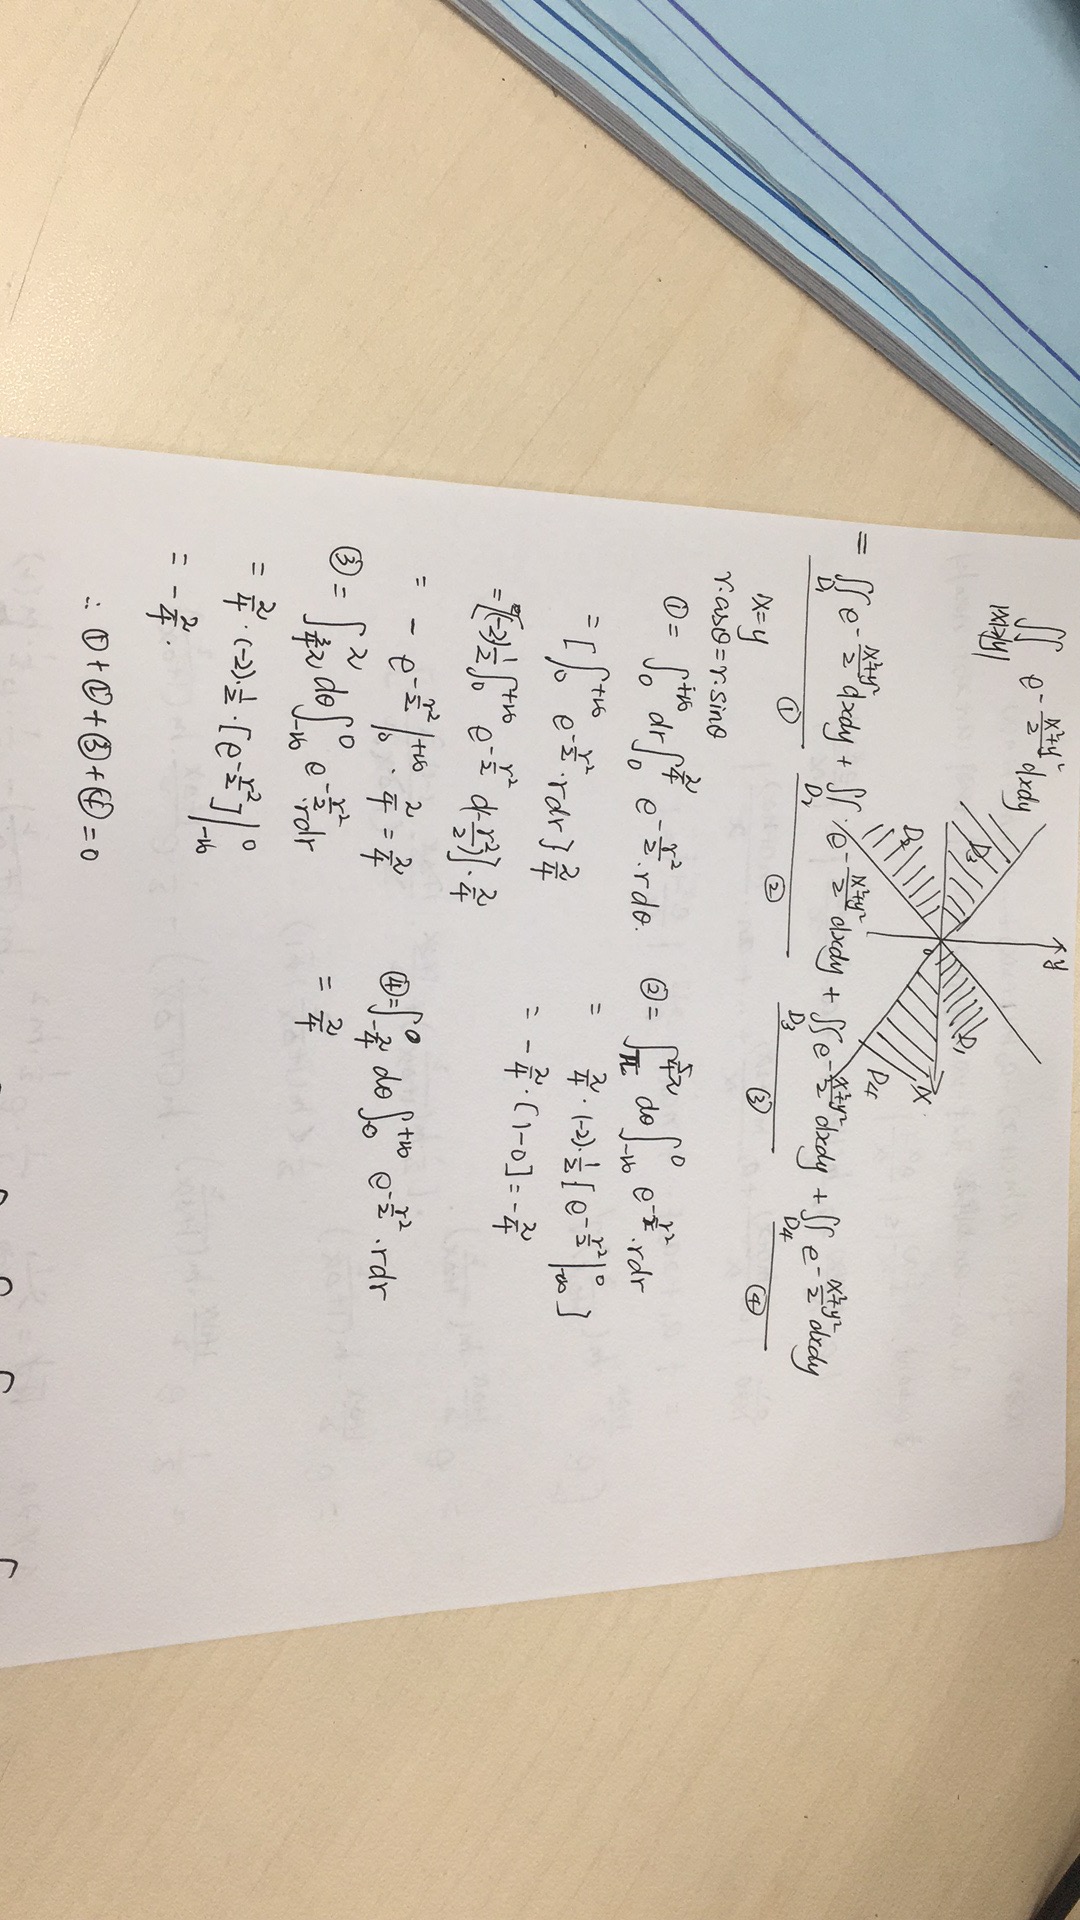 ∬_{|x|≥|y|} e^{-\frac{x²+y²}{2}} dxdy
y
D3
D1
x
D2
D4
= ∬_{D1} e^{-\frac{x²+y²}{2}} dxdy + ∬_{D2} e^{-\frac{x²+y²}{2}} dxdy + ∬_{D3} e^{-\frac{x²+y²}{2}} dxdy + ∬_{D4} e^{-\frac{x²+y²}{2}} dxdy
① ② ③ ④
x=y
r·cosθ=r·sinθ
① = ∫_0^{+∞} dr ∫_0^{\frac{π}{4}} e^{-\frac{r²}{2}}·r dθ.
= [∫_0^{+∞} e^{-\frac{r²}{2}}·rdr}\frac{π}{4}
=[(-2)\frac{1}{2}∫_0^{+∞} e^{-\frac{r²}{2}} d(-\frac{r²}{2})]·\frac{π}{4}
= - e^{-\frac{r²}{2}}|_0^{+∞}·\frac{π}{4} = \frac{π}{4}
② = ∫_π^{\frac{5}{4}π} dθ ∫_{-∞}^0 e^{-\frac{r²}{2}}·rdr
= \frac{π}{4}·(-2)·\frac{1}{2}[e^{-\frac{r²}{2}}|_{-∞}^0}
= -\frac{π}{4}·[1-0] = -\frac{π}{4}
③ = ∫_{\frac{3}{4}π}^π dθ ∫_{-∞}^0 e^{-\frac{r²}{2}}·rdr
= \frac{π}{4}·(-2)·\frac{1}{2}·[e^{-\frac{r²}{2}}]|_{-∞}^0
= -\frac{π}{4}.
④ = ∫_{-\frac{π}{4}}^0 dθ ∫_0^{+∞} e^{-\frac{r²}{2}}·rdr
= \frac{π}{4}
∴ ①+②+③+④=0